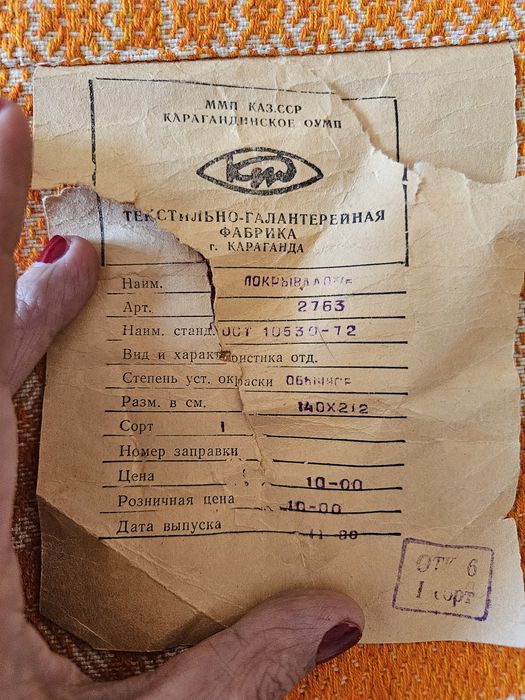 ММП КАЗ.ССР
КАРАГАНДИНСКОЕ ОУМП
ТЕКСТИЛЬНО-ГАЛАНТЕРЕЙНАЯ
ФАБРИКА
г. КАРАГАНДА
Наим. ПОКРЫВАЛО
Арт. 2763
Наим. станд. ОСТ 10530-72
Вид и характеристика отд.
Степень уст. окраски
Разм. в см. 140X212
Сорт 1
Номер заправки
Цена 10-00
Розничная цена 10-00
Дата выпуска
ОТК 6
I сорт